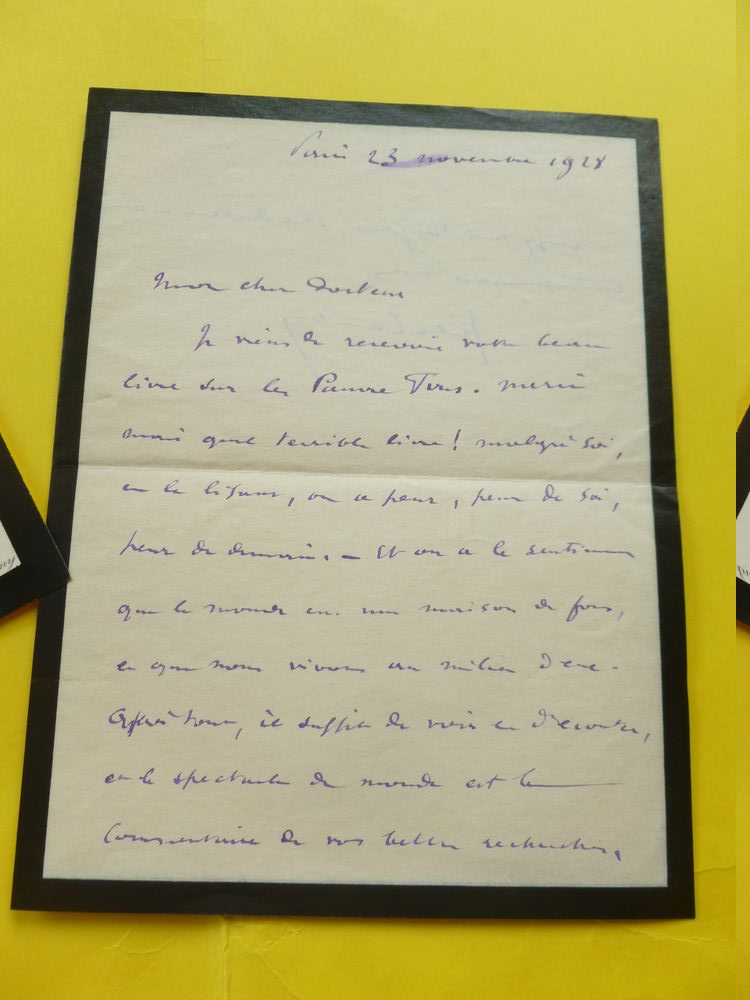 Paris 23 novembre 1928
Mon cher Docteur
Je viens de recevoir votre beau
livre sur les Pauvre Tous. merci
mais quel terrible livre! malgré soi,
en le lisant, on a peur, peur de soi,
peur de demain. — Et on a le sentiment
que le monde est une maison de fous,
et que nous vivons au milieu d'eux.
Après tout, il suffit de voir et d'écouter,
et le spectacle du monde est le
Commentaire de vos belles recherches,